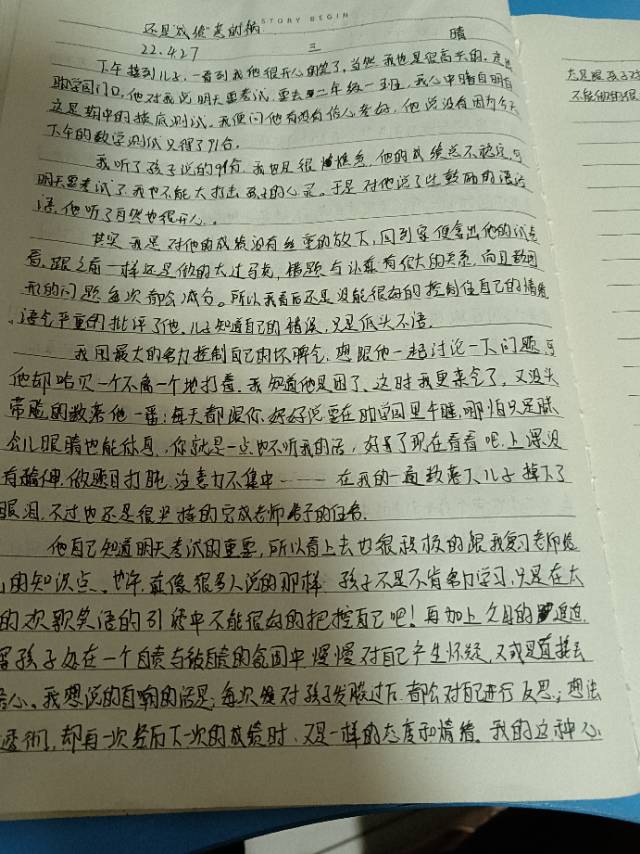 STORY BEGIN
还是"成绩"惹的祸
22.4.27 三 晴
下午接到儿子,一看到我他很开心的笑了,当然我也是很高兴的,走出
助学园门口,他对我说明天要考试,要去二年级一班,我心中暗自明白
这是期中的摸底测试。我便问他有没有信心考好,他说没有因为今天
下午的数学测试只得了91分。
我听了孩子说的91分,我也是很焦急,他的成绩总不稳定,
明天要考试了,我也不能太打击孩子的心灵。于是对他说了些鼓励的话
语,他听了自然也很开心。
其实,我是对他的成绩没有丝毫的放下,回到家便拿出他的试卷
看,跟之前一样还是做的太过马虎,错题与认真有很大的关系,而且数图
形的问题每次都会减分。所以我看后还是没能很好的控制住自己的情绪
,语气严重的批评了他,儿子知道自己的错误,只是低头不语。
我用最大的努力控制自己的坏脾气,想跟他一起讨论一下问题,
他却哈欠一个不离一个地打着,我知道他是困了,这时我更来气了,又没头
带脸的数落他一番:每天都跟你好好说要在助学园里午睡,哪怕只是眯
会儿眼睛也能休息,你就是一点也不听我的话,好了现在看看吧,上课没
有精神,做题目打盹,注意力不集中……在我的一通数落下儿子掉下了
眼泪,不过也还是很坚持的完成老师给予的任务。
他自己知道明天考试的重要,所以看上去也很积极的跟我复习老师给
的知识点。也许,真像很多人说的那样,孩子不是不肯努力学习,只是在太
的欢歌笑语的引领中不能很好的把控自己吧!再加上父母的逼迫,
孩子处在一个自责与被责的氛围中,慢慢对自己产生怀疑,又或是直接丢
心。我想说的自嘲的话是:每次我对孩子发脾气过后,都会对自己进行反思,想法
透彻,却再一次的成绩时,又是一样的态度和情绪。我的这种心